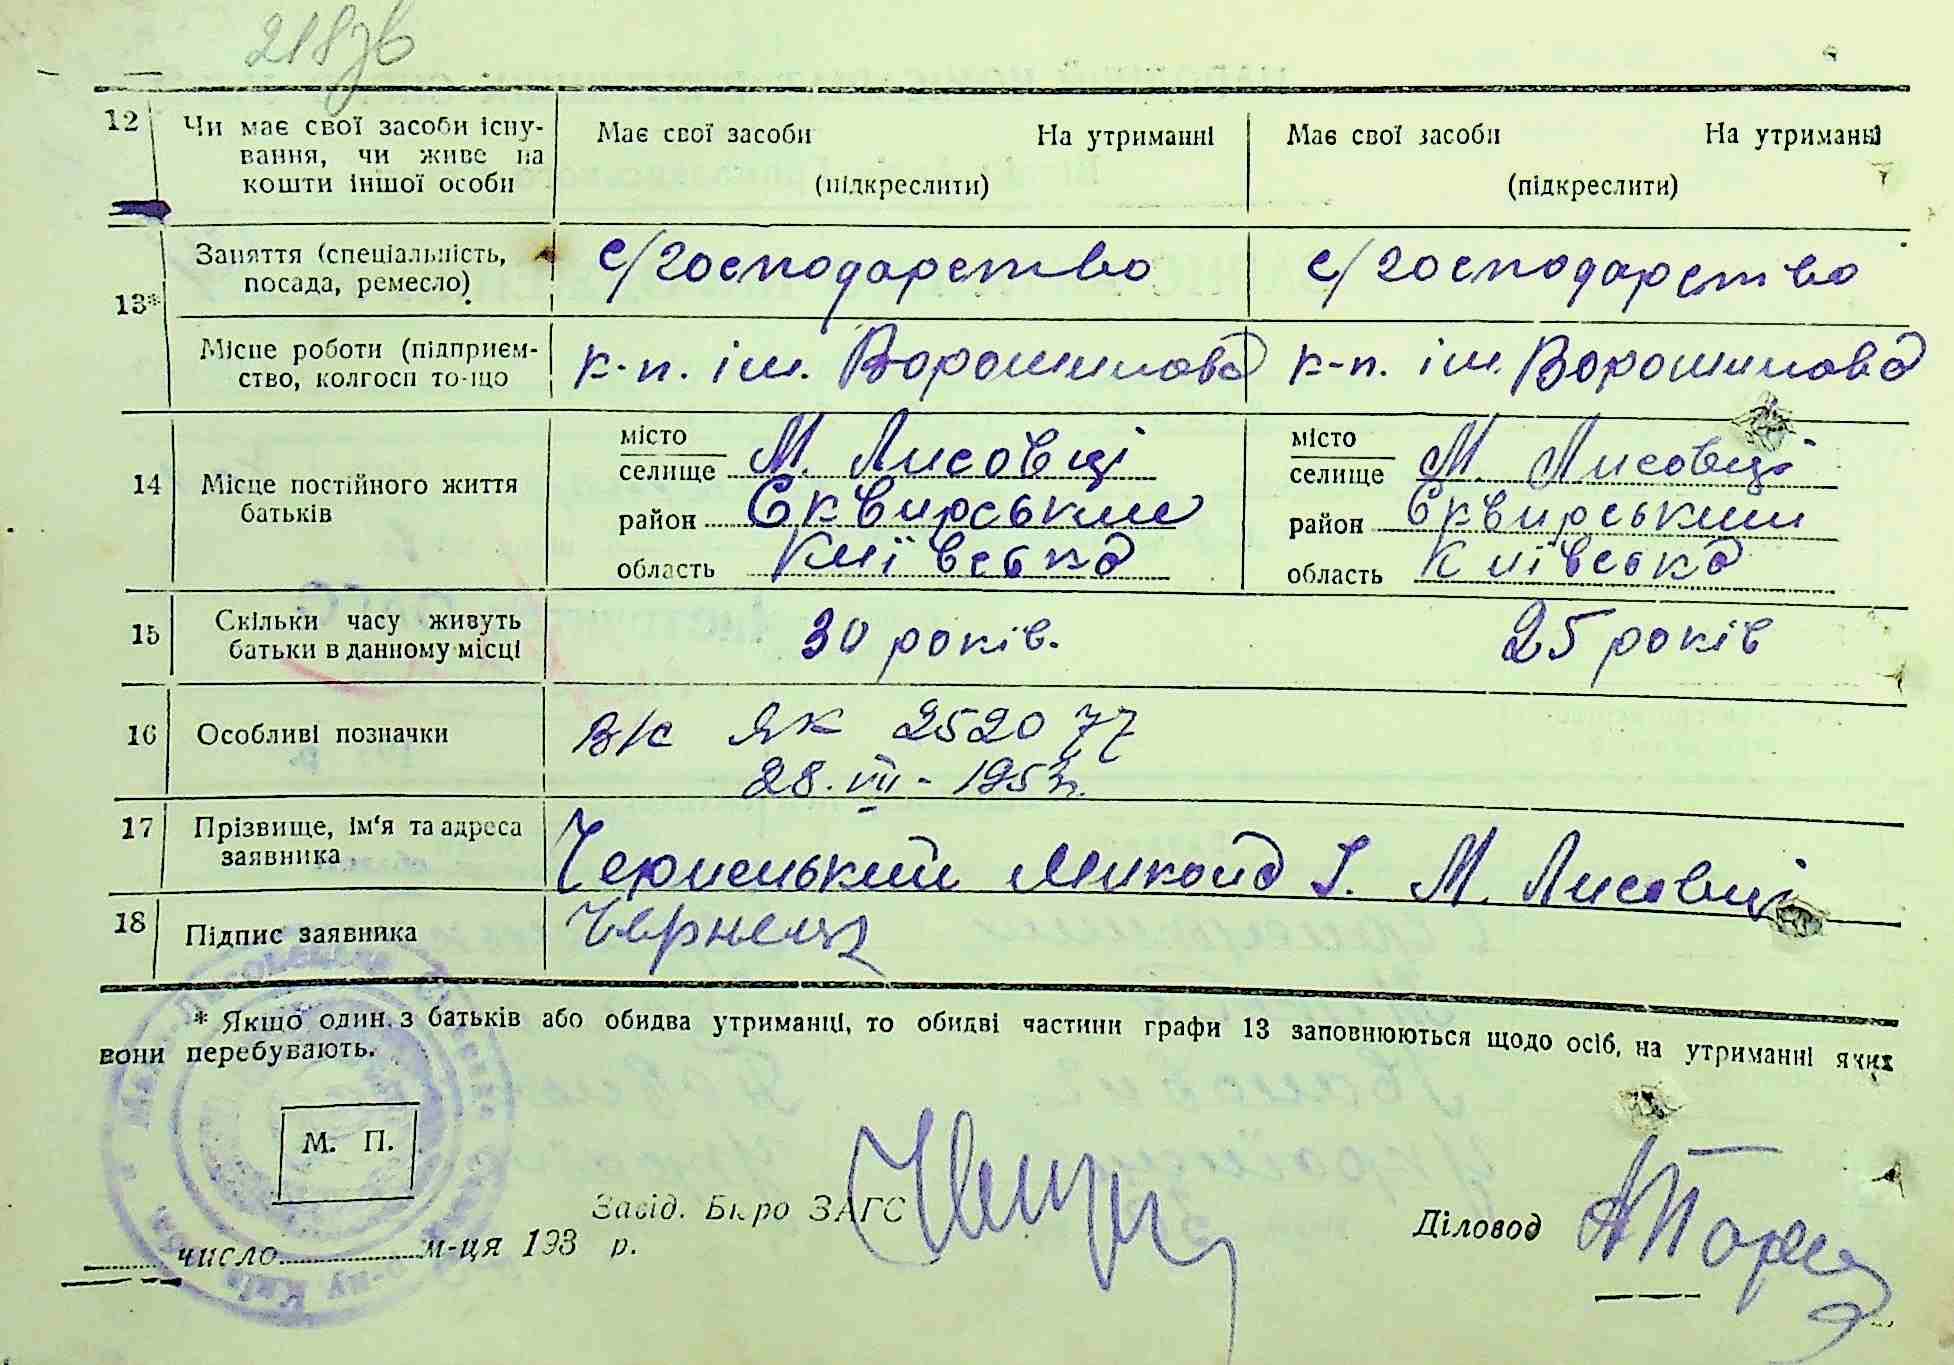 218зв
12 Чи має свої засоби існу-
вання, чи живе на
кошти іншої особи
Має свої засоби На утриманні
(підкреслити)
Має свої засоби На утриманні
(підкреслити)
13* Заняття (спеціальність,
посада, ремесло)
с/господарство
с/господарство
Місце роботи (підприєм-
ство, колгосп то-що
к-п. ім. Ворошилова
к-п. ім. Ворошилова
14 Місце постійного життя
батьків
місто
селище М. Лисовці
район Сквирський
область Київська
місто
селище М. Лисовці
район Сквирський
область Київська
15 Скільки часу живуть
батьки в данному місці
30 років.
25 років
16 Особливі позначки
в/с ЯК 252077
28.VII-195
17 Прізвище, ім'я та адреса
заявника
Микола І. М. Лисовці
18 Підпис заявника
* Якщо один з батьків або обидва утриманці, то обидві частини графи 13 заповнюються щодо осіб, на утриманні яких
вони перебувають.
М. П.
Завід. Бюро ЗАГС
Діловод
число м-ця 193 р.